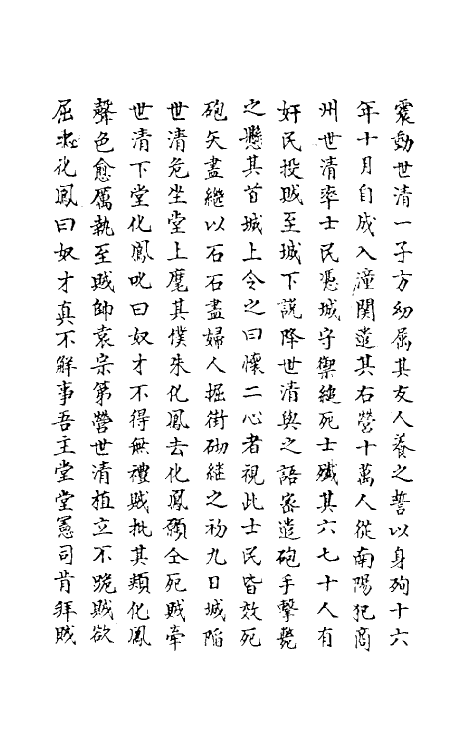 震動世清一子方幼屬其友人養之誓以身殉十六
年十月自成入潼關遣其右營十萬人從南陽犯商
州世清率士民憑城守禦縋死士殲其六七十人有
奸民投賊至城下説降世清與之語密遣砲手擊斃
之懸其首城上令之曰懷二心者視此士民皆效死
砲矢盡繼以石石盡婦人掘街砌繼之初九日城陷
世清危坐堂上麾其僕朱化鳳去化鳳願仝死賊牽
世清下堂化鳳叱曰奴才不得無禮賊批其頰化鳳
聲色愈厲執至賊帥袁宗第營世清植立不跪賊欲
屈之化鳳曰奴才真不解事吾主堂堂憲司肯拜賊